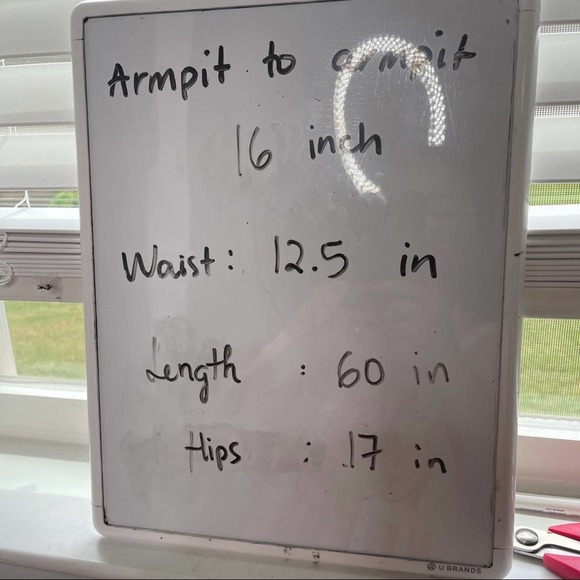 Armpit to armpit
16 inch
Waist: 12.5 in
Length : 60 in
Hips : 17 in
U BRANDS